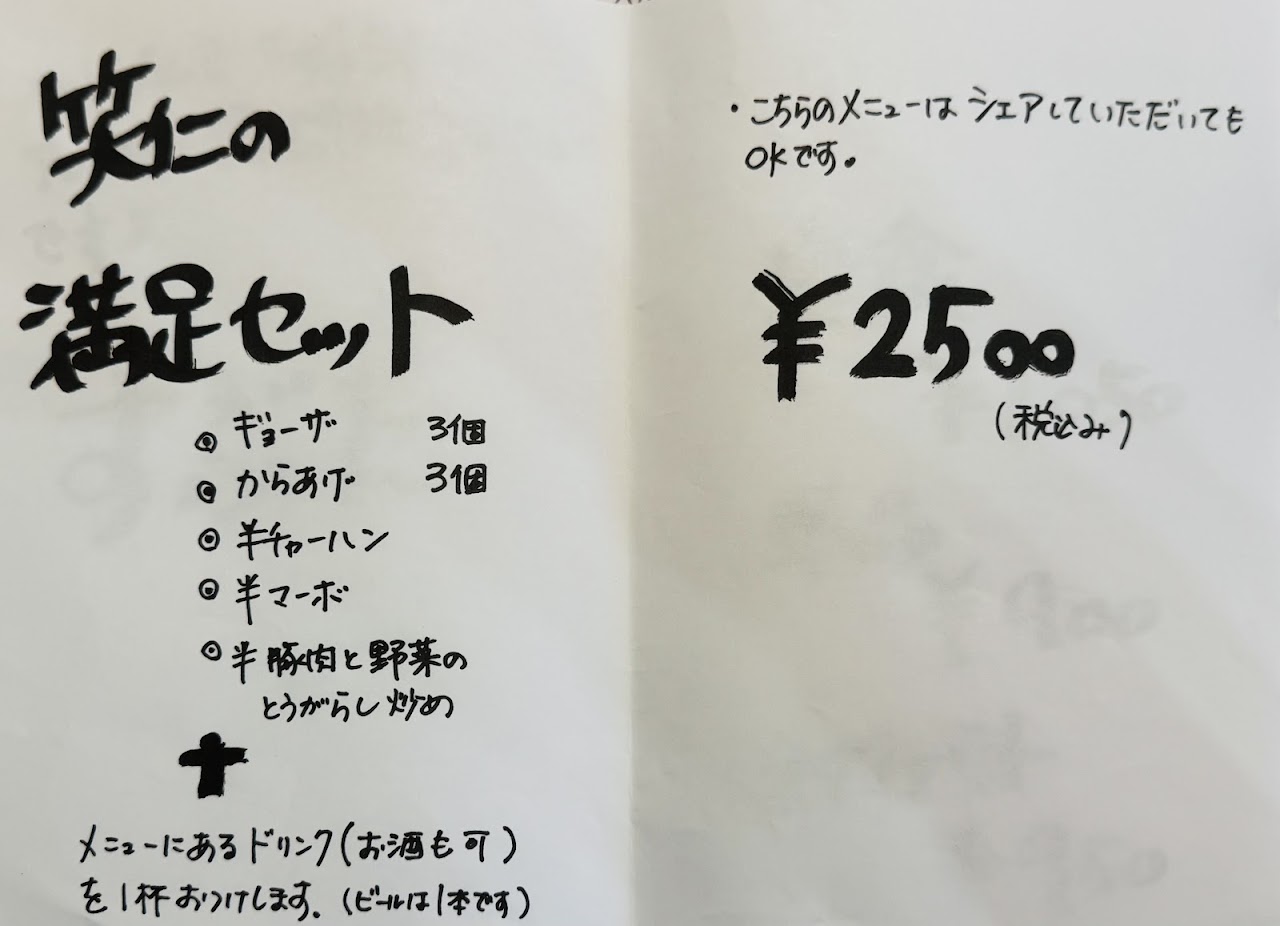 笑仁の
満足セット
◎ ギョーザ 3個
◎ からあげ 3個
◎ 半チャーハン
◎ 半マーボ
◎ 半豚肉と野菜の
とうがらし炒め
+
メニューにあるドリンク(お酒も可)
を1杯おつけします。(ビールは1本です)
・こちらのメニューはシェアしていただいても
OKです。
¥2500
(税込み)